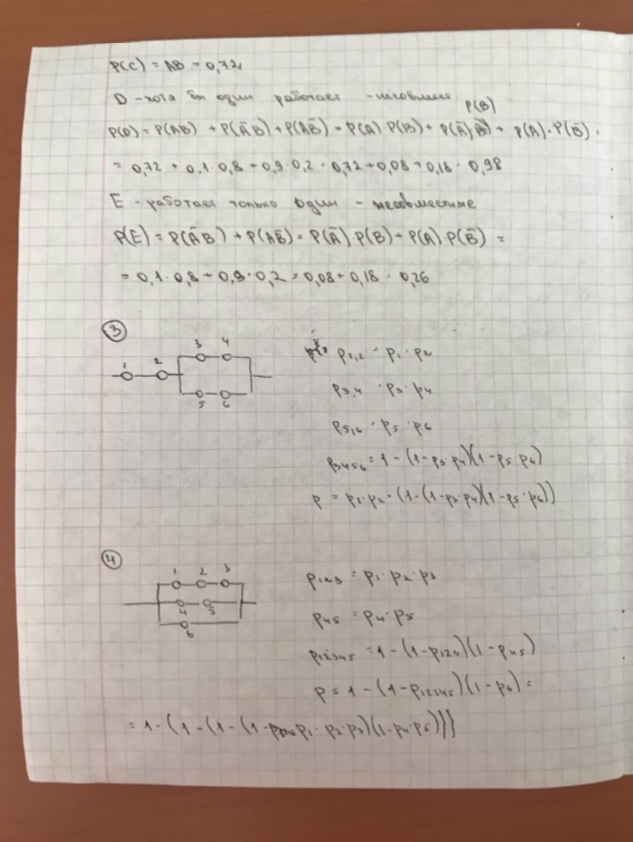 P(C) = AB = 0,72
D - хотя бы один работает - несовмест
P(B)
P(D) = P(AB) + P(ĀB) + P(AB̄) = P(A)·P(B) + P(Ā)· + P(A)·P(B̄) =
= 0,72 + 0,1·0,8 + 0,9·0,2 = 0,72 + 0,08 + 0,18 = 0,98
E - работает только один - несовместные
P(E) = P(ĀB) + P(AB̄) = P(Ā)·P(B) + P(A)·P(B̄) =
= 0,1·0,8 + 0,9·0,2 = 0,08 + 0,18 = 0,26
3
1 2 3 4
5 6
p1,2 = p1·p2
p3,4 = p3·p4
p5,6 = p5·p6
p3456 = 1-(1-p3·p4)(1-p5·p6)
p = p1·p2·(1-(1-p3·p4)(1-p5·p6))
4
1 2 3
4 5
6
p123 = p1·p2·p3
p45 = p4·p5
p12345 = 1-(1-p123)(1-p45)
p = 1-(1-p12345)(1-p6) =
= 1-(1-(1-(1-p1·p2·p3)(1-p4·p5)))